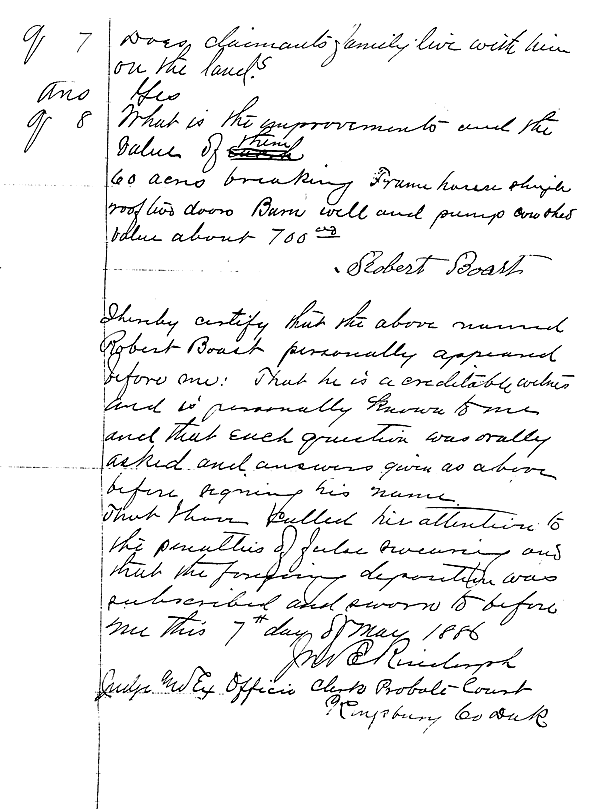 Q 7 Does claimants family live with him
on the land?
Ans Yes
Q 8 What is the improvements and the
Value of them
60 acres breaking Frame house shingle
roof two doors Barn well and pump cow shed
Value about 700 00
Robert Boast
I hereby certify that the above named
Robert Boast personally appeared
before me: That he is a creditable witness
and is personally known to me
and that each question was orally
asked and answers given as above
before signing his name
That I have called his attention to
the penalties of false swearing and
that the foregoing deposition was
subscribed and sworn to before
me this 7th day of May 1886
Jno E
Judge and Ex Officio Clerk Probate Court
Kingsbury Co Dak